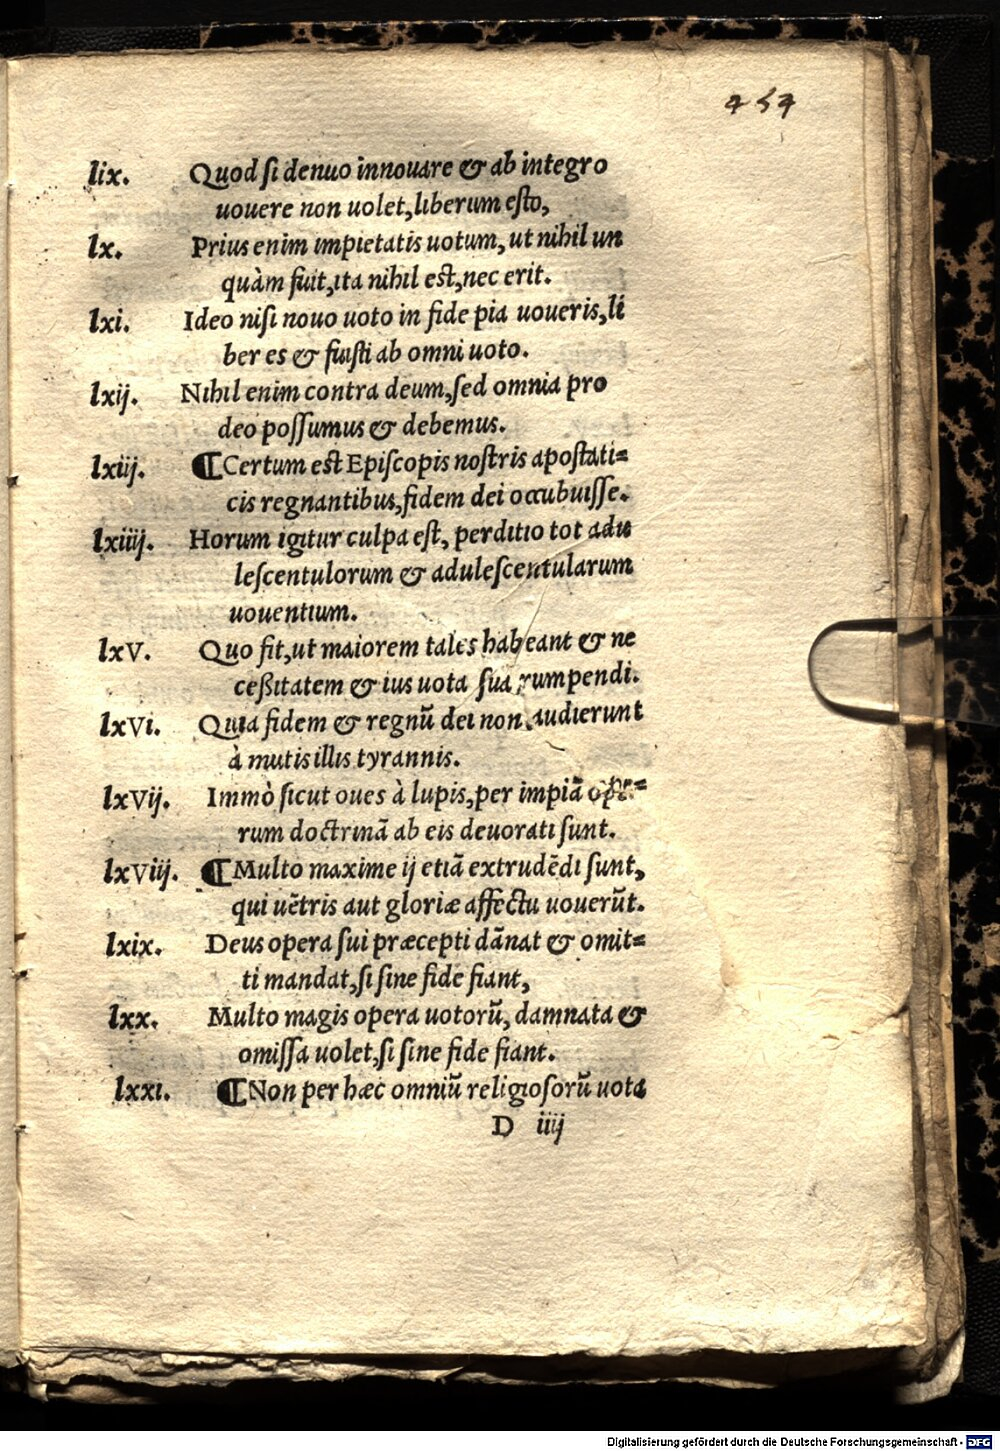 454
lix. Quod ſi denuo innouare & ab integro
uouere non uolet, liberum eſto,
lx. Prius enim impietatis uotum, ut nihil un
quàm fuit, ita nihil eſt, nec erit.
lxi. Ideo niſi nouo uoto in fide pia uoueris, li
ber es & fuiſti ab omni uoto.
lxij. Nihil enim contra deum, ſed omnia pro
deo poſſumus & debemus.
lxiij. ¶Certum eſt Epiſcopis noſtris apoſtati=
cis regnantibus, fidem dei occubuiſſe.
lxiiij. Horum igitur culpa eſt, perditio tot adu
leſcentulorum & aduleſcentularum
uouentium.
lxV. Quo fit, ut maiorem tales habeant & ne
ceßitatem & ius uota ſua rumpendi.
lxVi. Quia fidem & regnũ dei non audierunt
à mutis illis tyrannis.
lxVij. Immò ſicut oues à lupis, per impiã ope=
rum doctrinã ab eis deuorati ſunt.
lxViij. ¶Multo maxime ij etiã extrudẽdi ſunt,
qui uẽtris aut gloriæ affectu uouerũt.
lxix. Deus opera ſui præcepti dãnat & omit=
ti mandat, ſi ſine fide fiant,
lxx. Multo magis opera uotorũ, damnata &
omiſſa uolet, ſi ſine fide fiant.
lxxi. ¶Non per hæc omniũ religioſorũ uota
D iiij
Digitalisierung gefördert durch die Deutsche Forschungsgemeinschaft - DFG